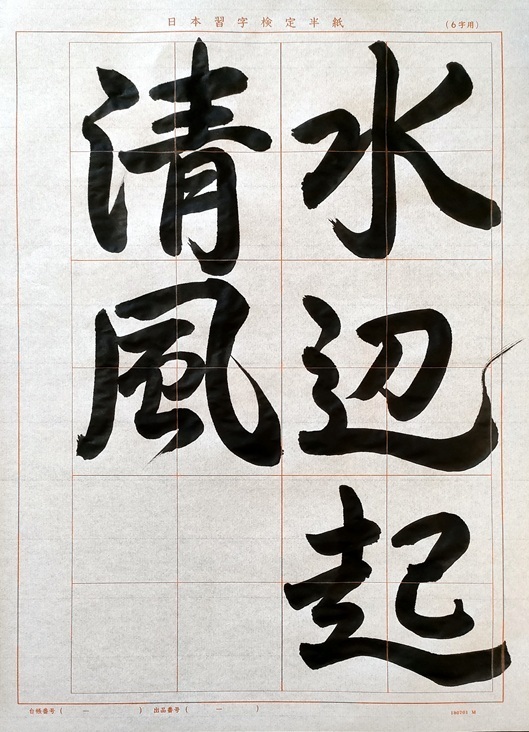 日本習字検定半紙
(6字用)
水辺起
清風
合格番号 ( ー ) 出品番号 ( ー )